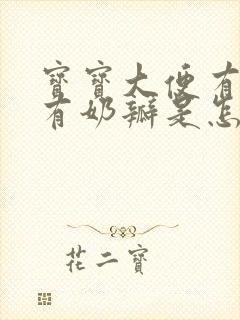 寶寶大便有
有奶瓣是怎
花二寶